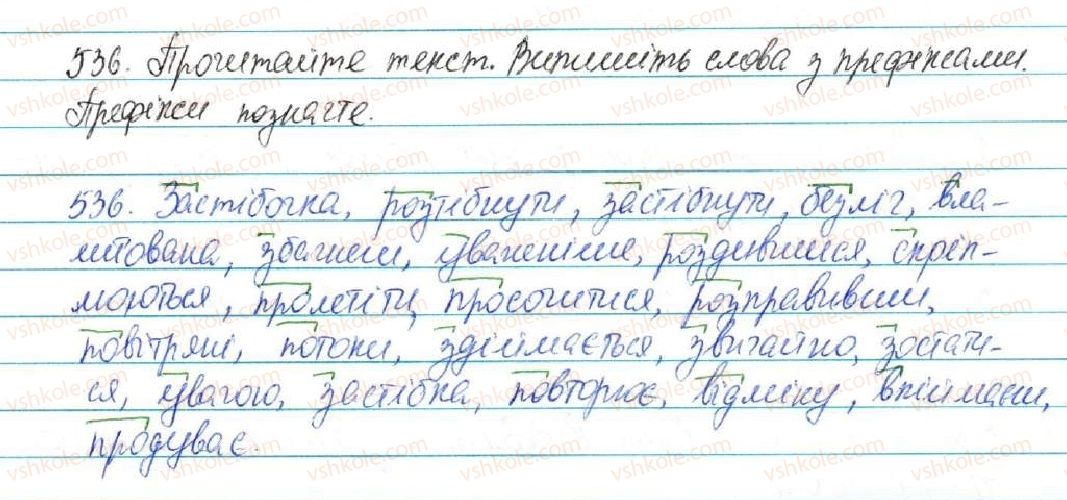 536. Прочитайте текст. Випишіть слова з префіксами.
Префікси позначте.
536. Застібочка, розтібнути, застібнути, безліч, вла-
штована, збагнеш, уважніше, роздивишися, скріп-
люються, пролетіти, просочитися, розправивши,
повітряні, потоки, здіймається, звичайно, зостати-
ся, увагою, застібка, повторює, відміну, впіймаєш,
продуває.